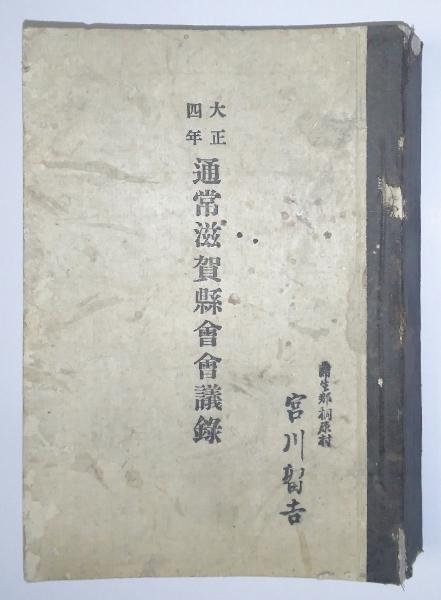 大正四年
通常滋賀縣會會議錄
蒲生郡桐原村
宮川留吉